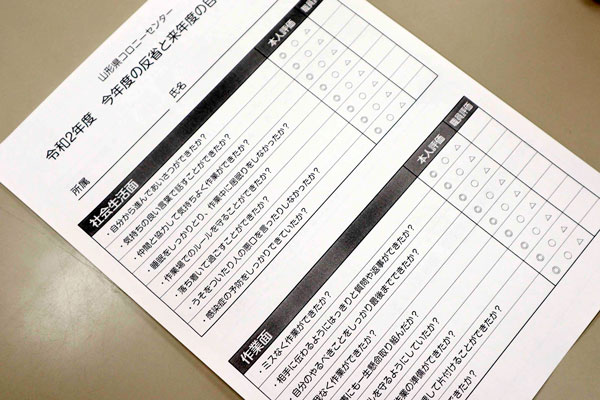 山形県コロニーセンター
令和2年度 今年度の反省と来年度の目
所属 氏名
社会生活面 本人評価 職員評価
・自分から進んであいさつができたか? ◎ ○ △
・気持ちの良い言葉で話すことができたか? ◎ ○ △
・仲間と協力して気持ちよく作業ができたか? ◎ ○ △
・睡眠をしっかりとり、作業中に居眠りをしなかったか? ◎ ○ △
・作業場でのルールを守ることができたか? ◎ ○ △
・落ち着いて過ごすことができたか? ◎ ○ △
・うそをついたり人の悪口を言ったりしなかったか? ◎ ○ △
・感染症の予防をしっかりできていたか? ◎ ○ △
作業面 本人評価 職員評価
・ミスなく作業ができたか? ◎ ○ △
・相手に伝わるようにはっきりと質問や返事ができたか? ◎ ○ △
・自分のやるべきことをしっかり最後までできたか? ◎ ○ △
なく作業ができたか? ◎ ○ △
にも一生懸命取り組んだか? ◎ ○ △
を守るようにしていたか? ◎ ○ △
業の準備ができたか? ◎ ○ △
して片付けることができたか? ◎ ○ △
できたか? ◎ ○ △